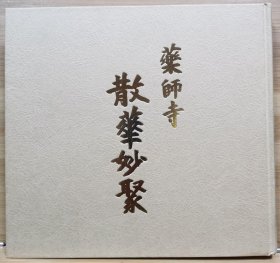 藥師寺
散華妙聚